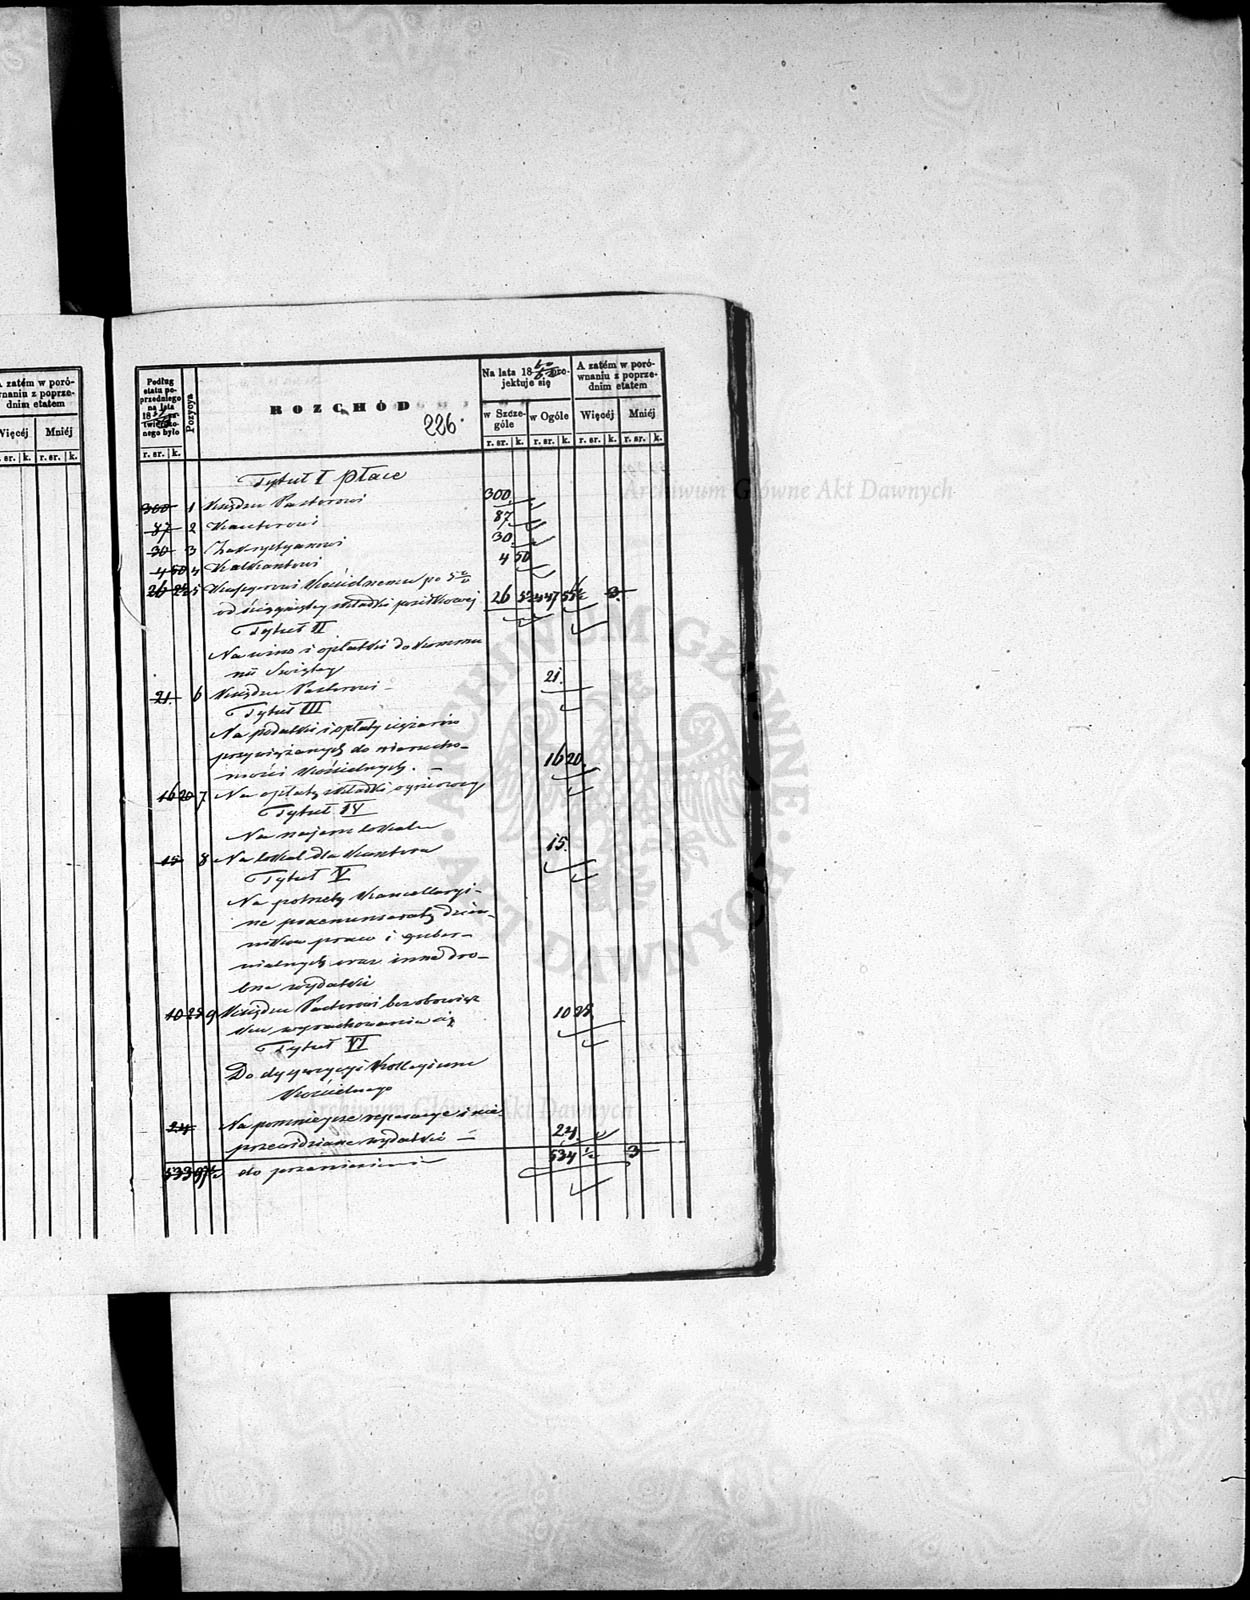 A zatém w poró-
wnaniu z poprze-
dnim etatem
Więcéj Mniéj
sr. k. r. sr. k.
Podług
etatu po-
przedniego
na lata
18
nego było
Pozycya
ROZCHÓD
226.
Na lata 18 pro-
jektuje się
A zatém w poró-
wnaniu z poprze-
dnim etatem
w Szcze-
góle
w Ogóle Więcéj Mniéj
r. sr. k. r. sr. k. r. sr. k. r. sr. k. r. sr. k.
Tytuł I płace
300 1 Księdzu Pastorowi 300
87 2 Kantorowi 87
30 3 Zakrystyanowi 30
4 50 4 Kalkantowi 4 50
26 5 Kassyerowi Kościelnemu po 5
od ściągniętej składki posiłkowej 26 447 3
Tytuł II
Na wino i opłatki do Kommu
nii Świętej
21. 6 Księdzu Pastorowi 21.
Tytuł III
Na podatki i opłaty ciężarów
przywiązanych do nierucho-
mości Kościelnych.
16 20 7 Na opłatę składki ogniowej 16 20
Tytuł IV
Na najem lokalu
15 8 Na lokal dla Kantora 15.
Tytuł V
Na potrzeby Kancellaryj-
ne praenumeratę dzien-
ników praw i guber-
nialnych oraz inne dro-
bne wydatki
10 9 Księdzu Pastorowi bez obowiąz
ku wyrachowania się 10
Tytuł VI
Do dyspozycyi Kollegium
Kościelnego
24 Na pomniejsze reperacye i nie
przewidziane wydatki 24
533 97 do przeniesienia 534 3
Archiwum Główne Akt Dawnych
ARCHIWUM GŁÓWNE AKT DAWNYCH
Archiwum Główne Akt Dawnych